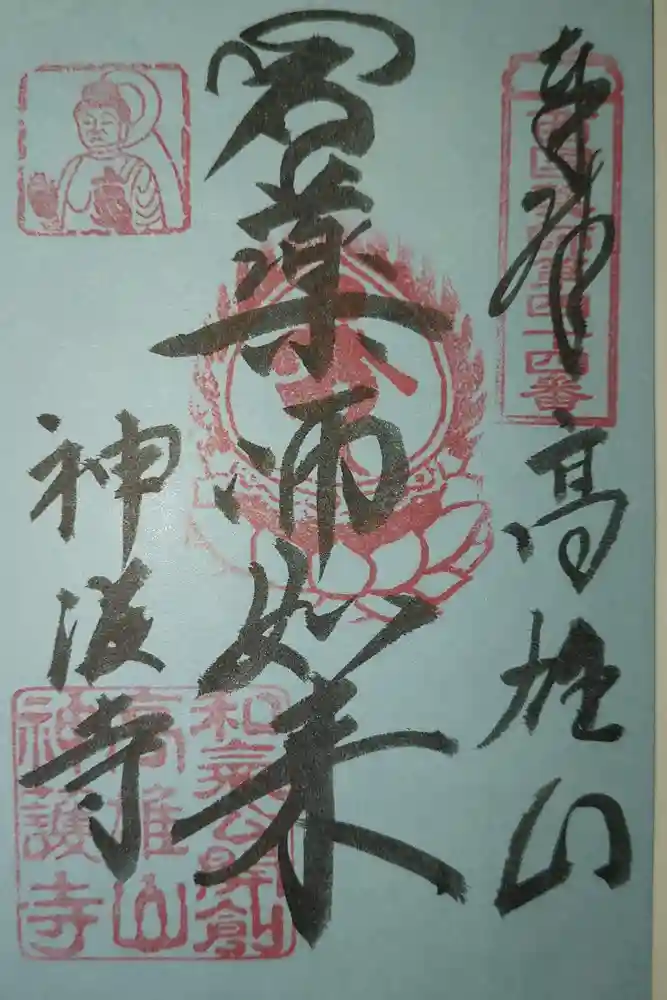 奉拝 高雄山
西国薬師四十四番
薬師如来
神護寺
和気公開創
高雄山
神護寺